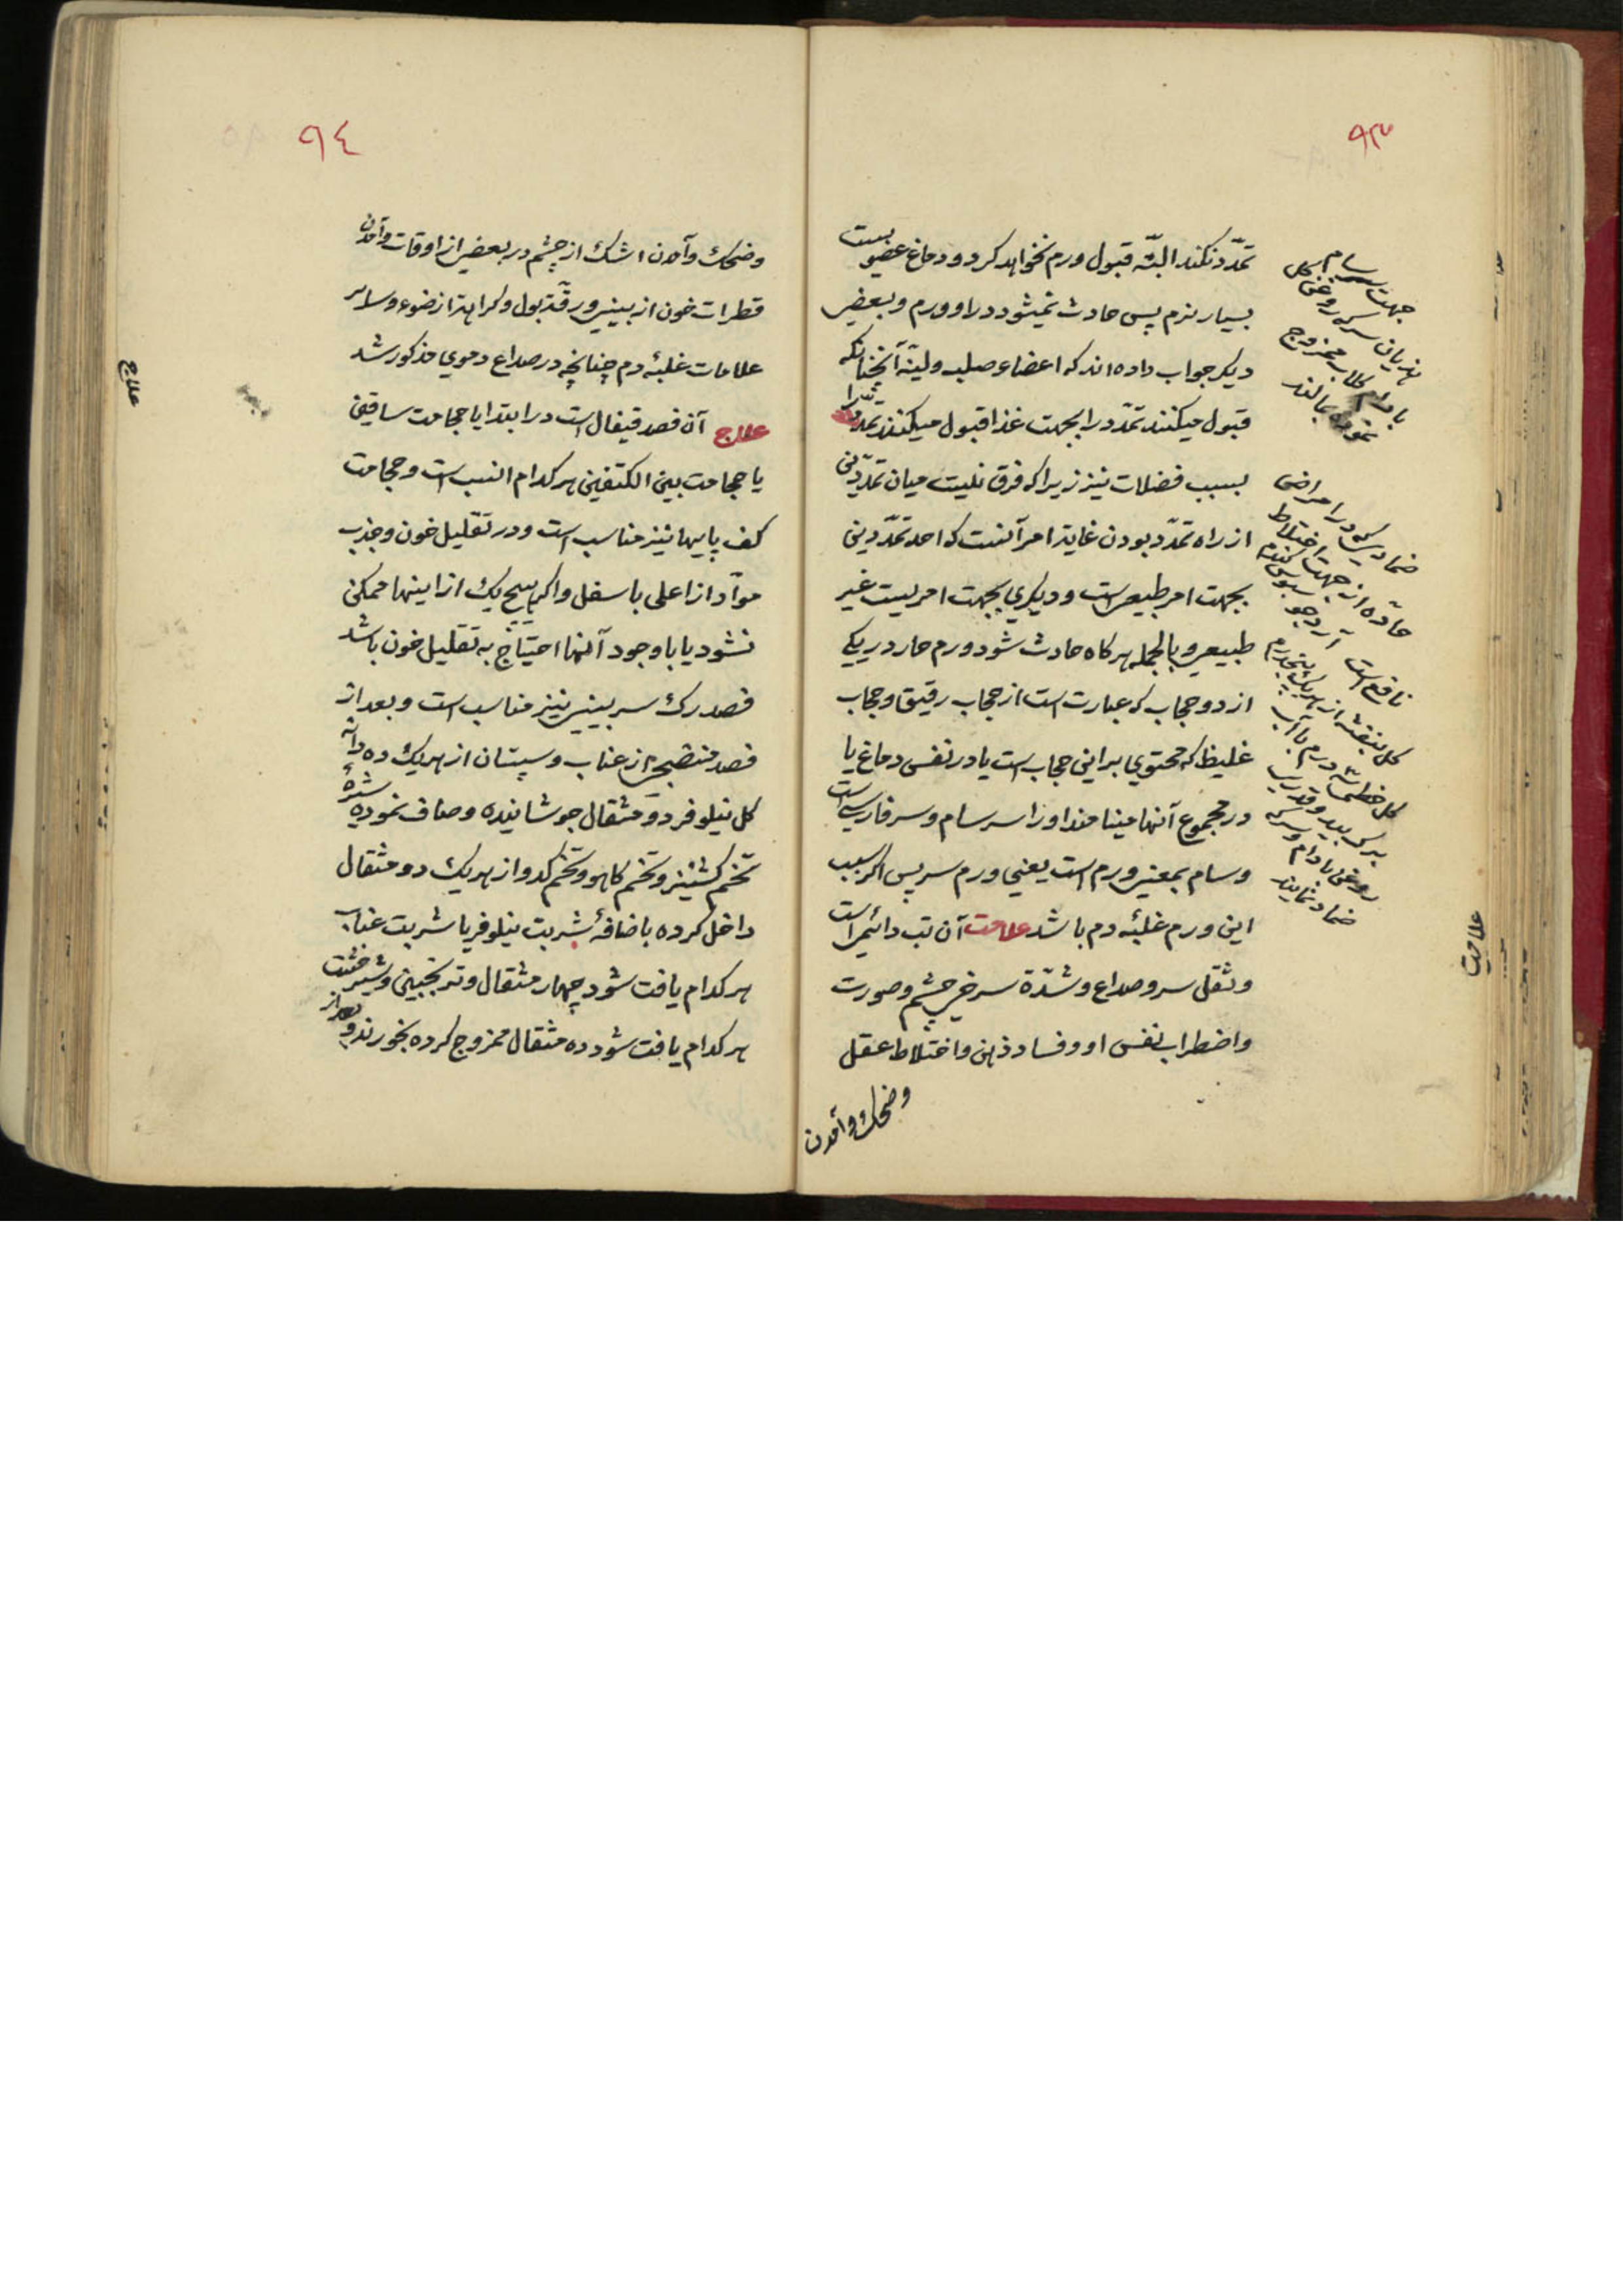 ٩٣
تمدّد نکند البتّه قبول ورم نخواهد کرد و دماغ عضویست
بسیار نرم پس حادث نمیشود در او ورم و بعضی
دیکر جواب داده‌اند که اعضاء صلب و لیّنه آنچنانکه
قبول میکنند تمدّد را بجهت غذا قبول میکنند تمدّد را
بسبب فضلات نیز زیرا که فرق نیست میان تمدّدین
از راه تمدّد بودن غایة امر آنست که احد تمدّدین
بجهت امر طبیعی است و دیکری بجهت امریست غیر
طبیعی و بالجمله هر کاه حادث شود ورم حار در یکی
از دو حجاب که عبارت است از حجاب رقیق و حجاب
غلیظ که محتوی بر این حجاب است یا در نفس دماغ یا
در مجموع آنها مینامند او را سرسام و سر فارسی است
و سام بمعنی ورم است یعنی ورم سر پس اکر سبب
این ورم غلبهٔ دم باشد علامت آن تب دائمی است
و ثقل سر و صداع و شدّة سرخی چشم و صورت
و اضطراب نفس او و فساد ذهن و اختلاط عقل
وضحک و آمدن
جهت سرسام
هذیان سرکه روغن کل
بادام کلاب ممزوج
نموده بمالند
ضمادیکه در امراض
حادّه از جهت اختلاط
نافع است آرد جو سبوس کندم
کل بنفشه از هریک پنجدرم
کل خطمی سه درم با آب
برک بید و قدری
روغن بادام و سرکه
ضماد نمایند
علامت
٩٤
وضحک و آمدن اشک از چشم در بعضی از اوقات و آمدن
قطرات خون از بینی و رقّة بول و کراهة از ضوء و سایر
علامات غلبهٔ دم چنانچه در صداع دموی مذکور شد
علاج آن فصد قیفال است در ابتدا یا حجامت ساقین
یا حجامت بین الکتفین هر کدام انسب است و حجامت
کف پاییها نیز مناسب است و در تقلیل خون و جذب
موآد از اعلی باسفل و اکر هیچ یک از اینها ممکن
نشود یا با وجود آنها احتیاج به تقلیل خون باشد
فصد رک سر بینی نیز مناسب است و بعد از
فصد منضجی از عناب و سپستان از هریک ده دانه
کل نیلوفر دو مثقال جوشانیده و صاف نموده شیرهٔ
تخم کشنیز و تخم کاهو و تخم کدو از هریک دو مثقال
داخل کرده باضافهٔ شربت نیلوفر یا شربت عناب
هر کدام یافت شود چهار مثقال و ترنجبین و شیرخشت
هر کدام یافت شود ده مثقال ممزوج کرده بخورند و بعد از
علاج